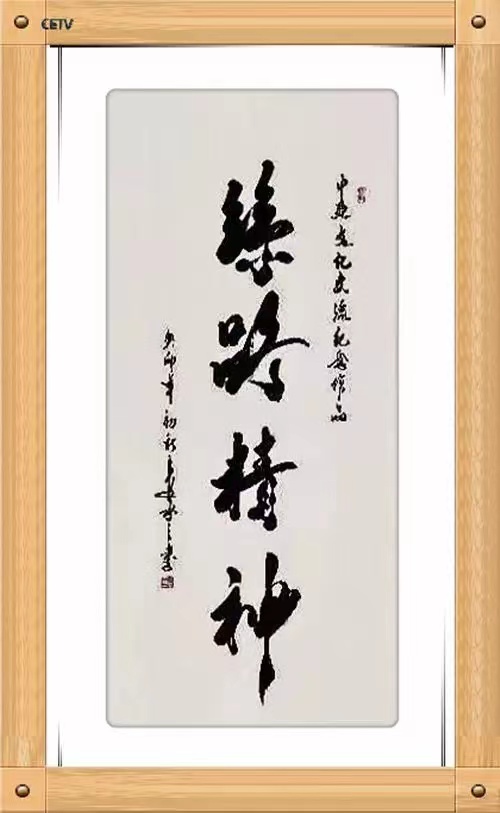 CETV
中 文化交流纪念作品
絲路精神
癸卯年初秋